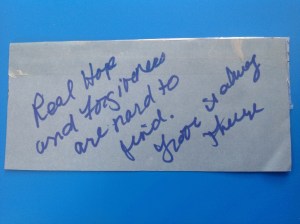 Real Hope
and Forgiveness
are hard to
find.
Grace is always
there